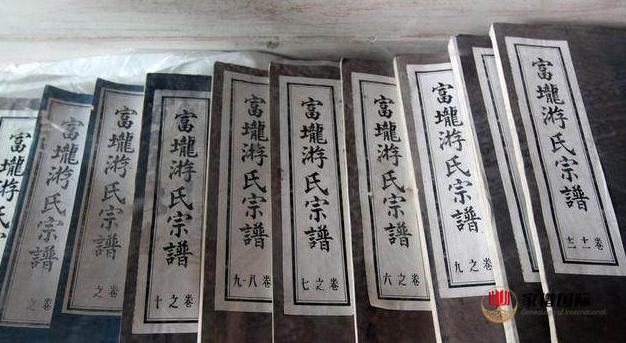 富壠游氏
富壠游氏宗譜
卷之
富壠游氏宗譜
卷之
富壠游氏宗譜
卷之十
富壠游氏宗譜
卷八-九
富壠游氏宗譜
卷之七
富壠游氏宗譜
卷之六
富壠游氏宗譜
卷之九
富壠游氏宗譜
家谱国际
Genealogy of International